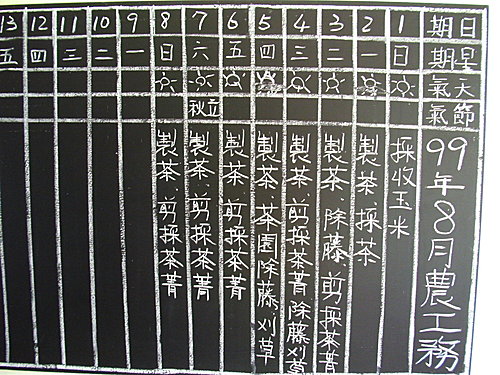 日期
星期
天氣
節氣
99年8月農工務
1
日
採收玉米
2
一
製茶.採茶
3
二
製茶.除藤.剪採茶菁
4
三
製茶.剪採茶菁除藤刈草
5
四
製茶.茶園除藤.刈草
6
五
製茶.剪採茶菁
7
六
立秋
製茶.剪採茶菁
8
日
製茶.剪採茶菁
9
一
10
二
11
三
12
四
13
五